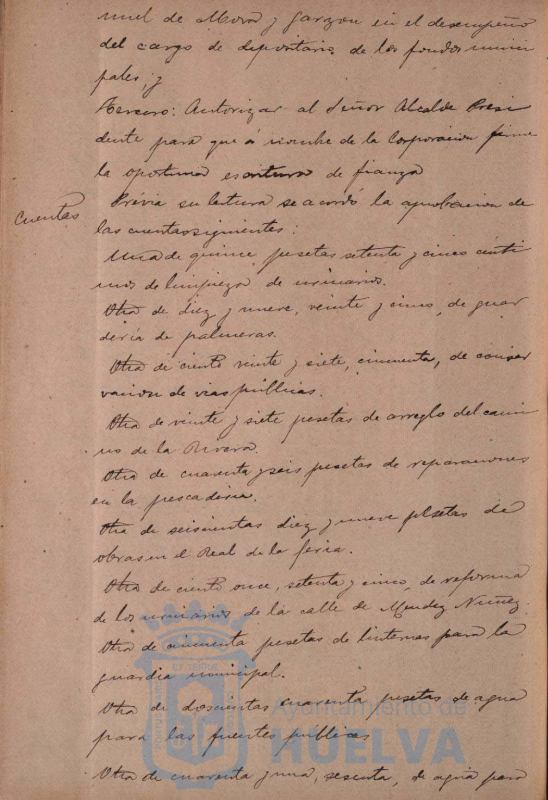 nuel de Mora y Garzon en el desempeño
del cargo de depositario de los fondos munici
pales; y
Tercero: Autorizar al Señor Alcalde Presi
dente para que á nombre de la Corporacion firme
la oportuna escritura de fianza
Cuentas
Prévia su lectura se acordó la aprobacion de
las cuentas siguientes:
Una de quince pesetas setenta y cinco cénti
mos de limpieza de urinarios.
Otra de diez y nueve, veinte y cinco, de guar
deria de palmeras.
Otra de ciento veinte y siete, cincuenta, de conser
vacion de vias públicas.
Otra de veinte y siete pesetas de arreglo del cami
no de la Rivera.
Otra de cuarenta y seis pesetas de reparaciones
en la pescaderia.
Otra de seiscientas diez y nueve pesetas de
obras en el Real de la feria.
Otra de ciento once, setenta y cinco, de reforma
de los urinarios de la calle de Mendez Nuñez.
Otra de cincuenta pesetas de linternas para la
guardia municipal.
Otra de doscientas cuarenta pesetas de agua
para las fuentes públicas
Otra de cuarenta y una, sesenta, de agua para
Ayuntamiento de
HUELVA